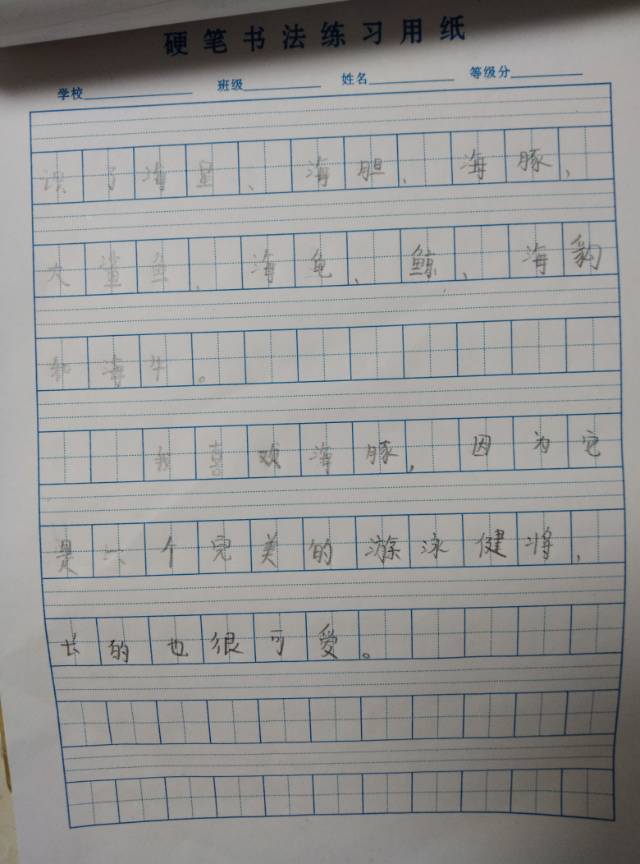 硬笔书法练习用纸
学校 班级 姓名 等级分
识了海星、海胆、海豚、
大章鱼、海龟、鲸、海豹
和海牛。
我喜欢海豚,因为它
是一个完美的游泳健将,
长的也很可爱。